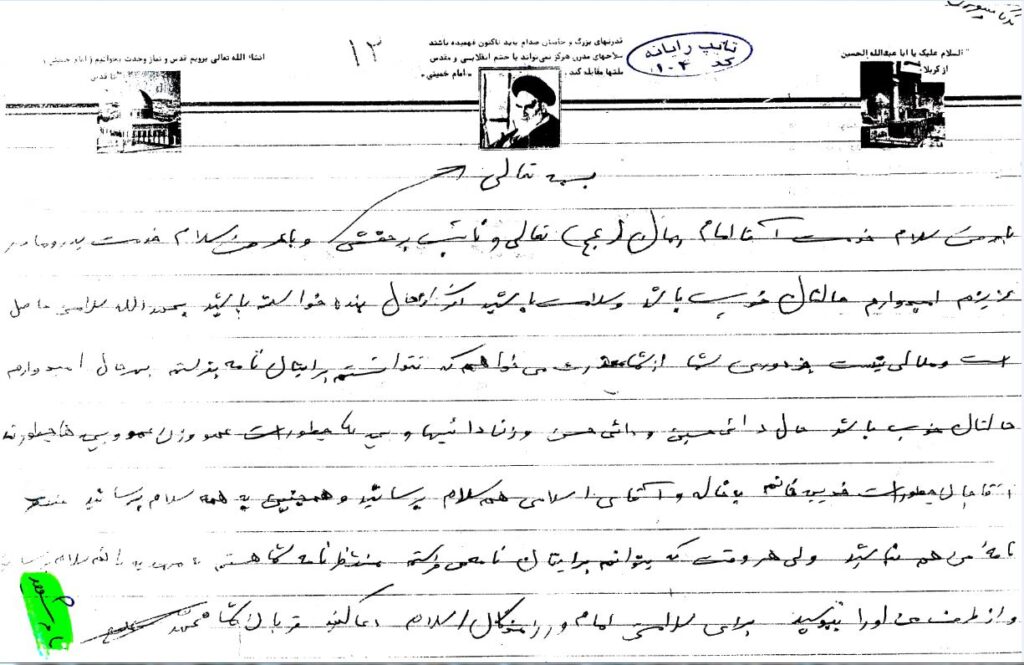 السلام علیک یا ابا عبدالله الحسین
از کربلا
تایپ رایانه
کد ۱۰۴
قدرتهای بزرگ و حامیان صدام باید تاکنون فهمیده باشند
سلاحهای مدرن هرگز نمی‌تواند با خشم انقلابی و مقدس
ملتها مقابله کند. «امام خمینی»
۱۲
انشاء الله تعالی برویم قدس و نماز وحدت بخوانیم (امام خمینی)
قدس
بسمه تعالی
با عرض سلام خدمت آقا امام زمان (عج) تعالی و نائب بر حقش و با عرض سلام خدمت پدر و مادر
عزیزم امیدوارم حالتان خوب باشد و سلامت باشید اگر از حال بنده خواسته باشید بحمدالله سلامتی حاصل
است و ملالی نیست بجز دوری شما از شما معذرت می خواهم که نتوانستم برایتان نامه بفرستم بهرحال امیدوارم
حالتان خوب باشد حال دائی حسین و دائی حسن و زن دائیها و بچه ها چطور است عمو و زن عمو و بچه ها چطورند
آقاجان چطور است خدیجه خانم به خاله و آقای اسلامی هم سلام برسانید و همچنین به همه سلام برسانید منتظر
نامه من هم نباشید ولی هر وقت که بتوانم برایتان نامه می فرستم منتظر نامه شما هستم به مهدی هم سلام برسانید
و از طرف من او را ببوسید برای سلامتی امام و رزمندگان اسلام دعا کنید قربان شما محمد